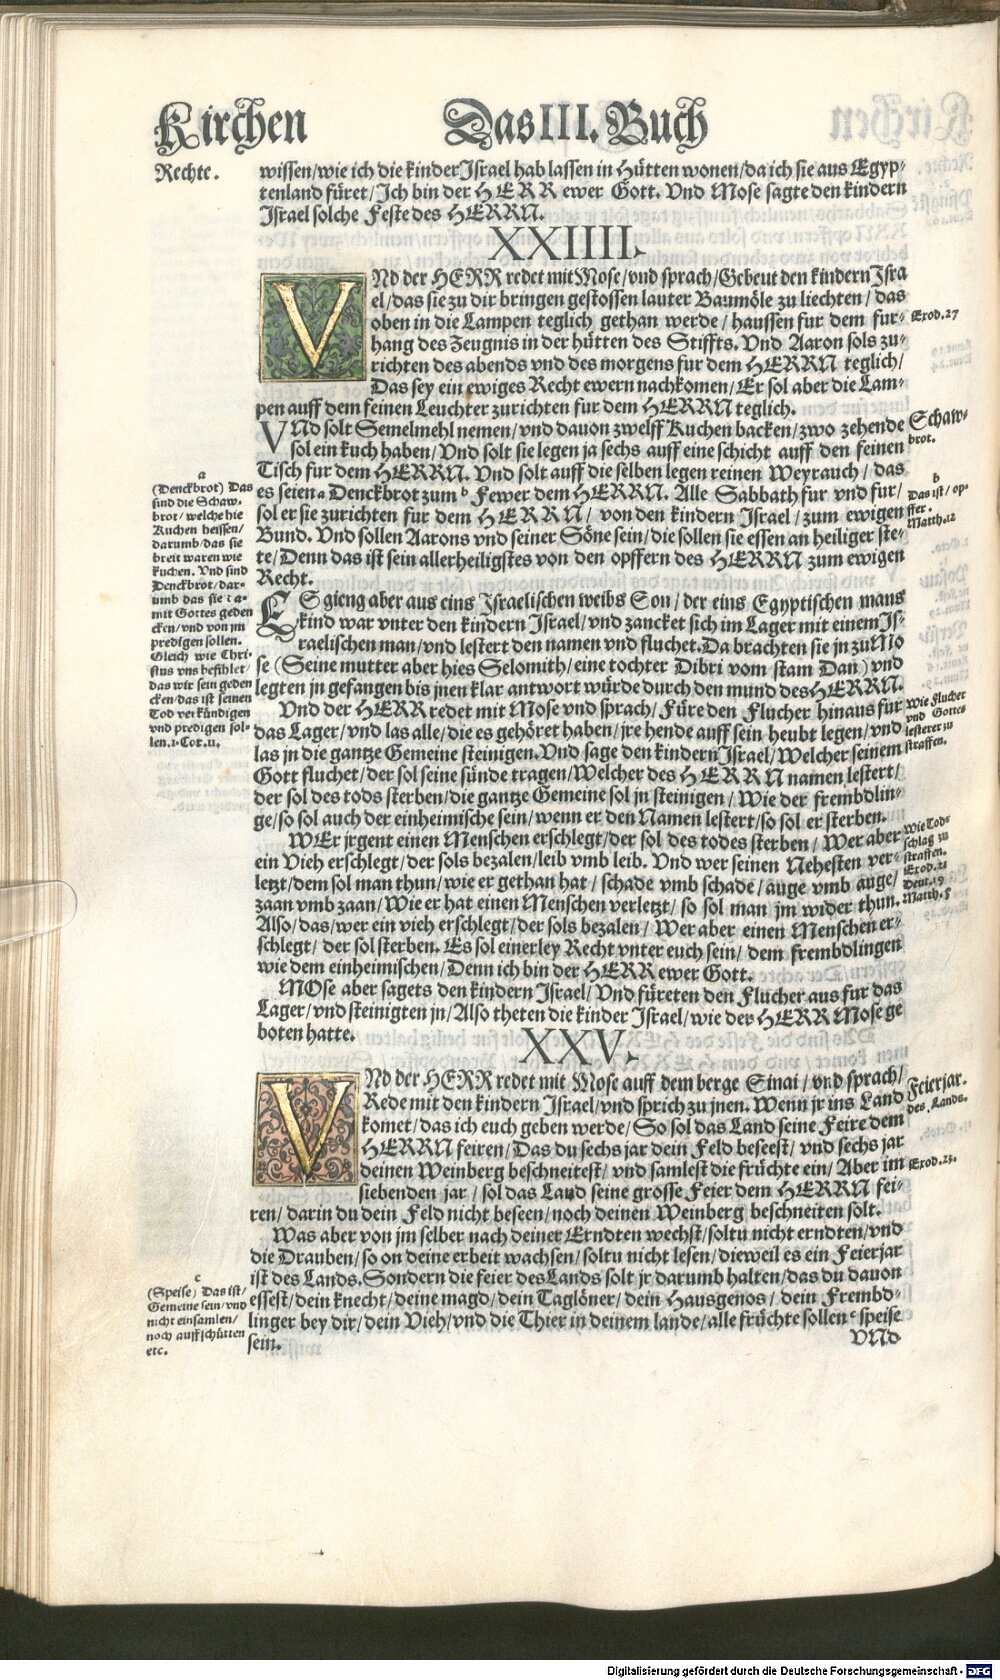 Kirchen Das III. Buch
Rechte.
wissen/wie ich die kinder Israel hab lassen in Hütten wonen/da ich sie aus Egyp-
tenland füret/Ich bin der HERR ewer Gott. Vnd Mose sagte den kindern
Israel solche Feste des HERRN.
XXIIII.
VNd der HERR redet mit Mose/vnd sprach/Gebeut den kindern Isra
el/das sie zu dir bringen gestossen lauter Baumöle zu liechten/das
oben in die Lampen teglich gethan werde/haussen fur dem fur-
hang des Zeugnis in der hütten des Stiffts. Vnd Aaron sols zu-
richten des abends vnd des morgens fur dem HERRN teglich/
Das sey ein ewiges Recht ewern nachkomen/Er sol aber die Lam-
pen auff dem feinen Leuchter zurichten fur dem HERRN teglich.
Exod.27
VNd solt Semelmehl nemen/vnd dauon zwelff Kuchen backen/zwo zehende
sol ein kuch haben/Vnd solt sie legen ja sechs auff eine schicht auff den feinen
Tisch fur dem HERRN. Vnd solt auff die selben legen reinen Weyrauch/das
es seien a Denckbrot zum b Fewer dem HERRN. Alle Sabbath fur vnd fur/
sol er sie zurichten fur dem HERRN/von den kindern Israel/zum ewigen
Bund. Vnd sollen Aarons vnd seiner Söne sein/die sollen sie essen an heiliger ste-
te/Denn das ist sein allerheiligstes von den opffern des HERRN zum ewigen
Recht.
Schaw-
brot.
b
Das ist/op-
ffer.
Matth.12
a
(Denckbrot) Das
sind die Schaw-
brot/welche hie
Kuchen heissen/
darumb/das sie
breit waren wie
kuchen. Vnd sind
Denckbrot/dar-
umb das sie da-
mit Gottes geden
cken/vnd von jm
predigen sollen.
Gleich wie Chri-
stus vns befihlet/
das wir sein geden
cken/das ist seinen
Tod verkündigen
vnd predigen sol-
len.1.Cor.11.
ES gieng aber aus eins Israelischen weibs Son/der eins Egyptischen mans
kind war vnter den kindern Israel/vnd zancket sich im Lager mit einem Is-
raelischen man/vnd lestert den namen vnd fluchet. Da brachten sie jn zu Mo
se (Seine mutter aber hies Selomith/eine tochter Dibri vom stam Dan) vnd
legten jn gefangen bis jnen klar antwort würde durch den mund des HERRN.
Vnd der HERR redet mit Mose vnd sprach/Füre den Flucher hinaus fur
das Lager/vnd las alle/die es gehöret haben/jre hende auff sein heubt legen/vnd
las jn die gantze Gemeine steinigen. Vnd sage den kindern Israel/Welcher seinem
Gott fluchet/der sol seine sünde tragen/Welcher des HERRN namen lestert/
der sol des tods sterben/die gantze Gemeine sol jn steinigen/Wie der frembdlin-
ge/so sol auch der einheimische sein/wenn er den Namen lestert/so sol er sterben.
Wie Flucher
vnd Gottes
lesterer zu
straffen.
WEr jrgent einen Menschen erschlegt/der sol des todes sterben/Wer aber
ein Vieh erschlegt/der sols bezalen/leib vmb leib. Vnd wer seinen Nehesten ver-
letzt/dem sol man thun/wie er gethan hat/schade vmb schade/auge vmb auge/
zaan vmb zaan/Wie er hat einen Menschen verletzt/so sol man jm wider thun.
Also/das/wer ein vieh erschlegt/der sols bezalen/Wer aber einen Menschen er-
schlegt/der sol sterben. Es sol einerley Recht vnter euch sein/dem frembdlingen
wie dem einheimischen/Denn ich bin der HERR ewer Gott.
Wie Tod-
schlag zu
straffen.
Exod.21
Deut.19
Matth.5
MOse aber sagets den kindern Israel/Vnd füreten den Flucher aus fur das
Lager/vnd steinigten jn/Also theten die kinder Israel/wie der HERR Mose ge
boten hatte.
XXV.
VNd der HERR redet mit Mose auff dem berge Sinai/vnd sprach/
Rede mit den kindern Israel/vnd sprich zu jnen. Wenn jr ins Land
komet/das ich euch geben werde/So sol das Land seine Feire dem
HERRN feiren/Das du sechs jar dein Feld beseest/vnd sechs jar
deinen Weinberg beschneitest/vnd samlest die früchte ein/Aber im
siebenden jar/sol das Land seine grosse Feier dem HERRN fei-
ren/darin du dein Feld nicht beseen/noch deinen Weinberg beschneiten solt.
Feierjar.
des Lands.
Exod.23.
Was aber von jm selber nach deiner Erndten wechst/soltu nicht erndten/vnd
die Drauben/so on deine erbeit wachsen/soltu nicht lesen/dieweil es ein Feierjar
ist des Lands. Sondern die feier des Lands solt jr darumb halten/das du dauon
essest/dein knecht/deine magd/dein Taglöner/dein Hausgenos/dein Frembd-
linger bey dir/dein Vieh/vnd die Thier in deinem lande/alle früchte sollen c speise
sein.
VNd
c
(Speise) Das ist/
Gemeine sein/vnd
nicht einsamlen/
noch auffschütten
etc.
Digitalisierung gefördert durch die Deutsche Forschungsgemeinschaft - DFG